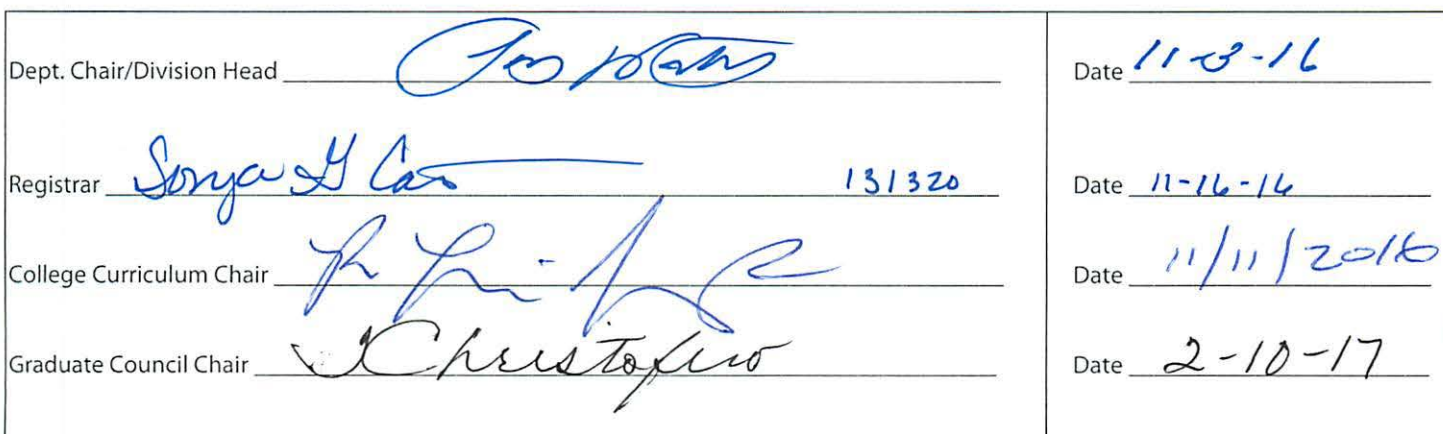 Dept. Chair/Division Head Date 11-3-16
Registrar Sonya G 131320 Date 11-16-16
College Curriculum Chair Date 11/11/2016
Graduate Council Chair Date 2-10-17